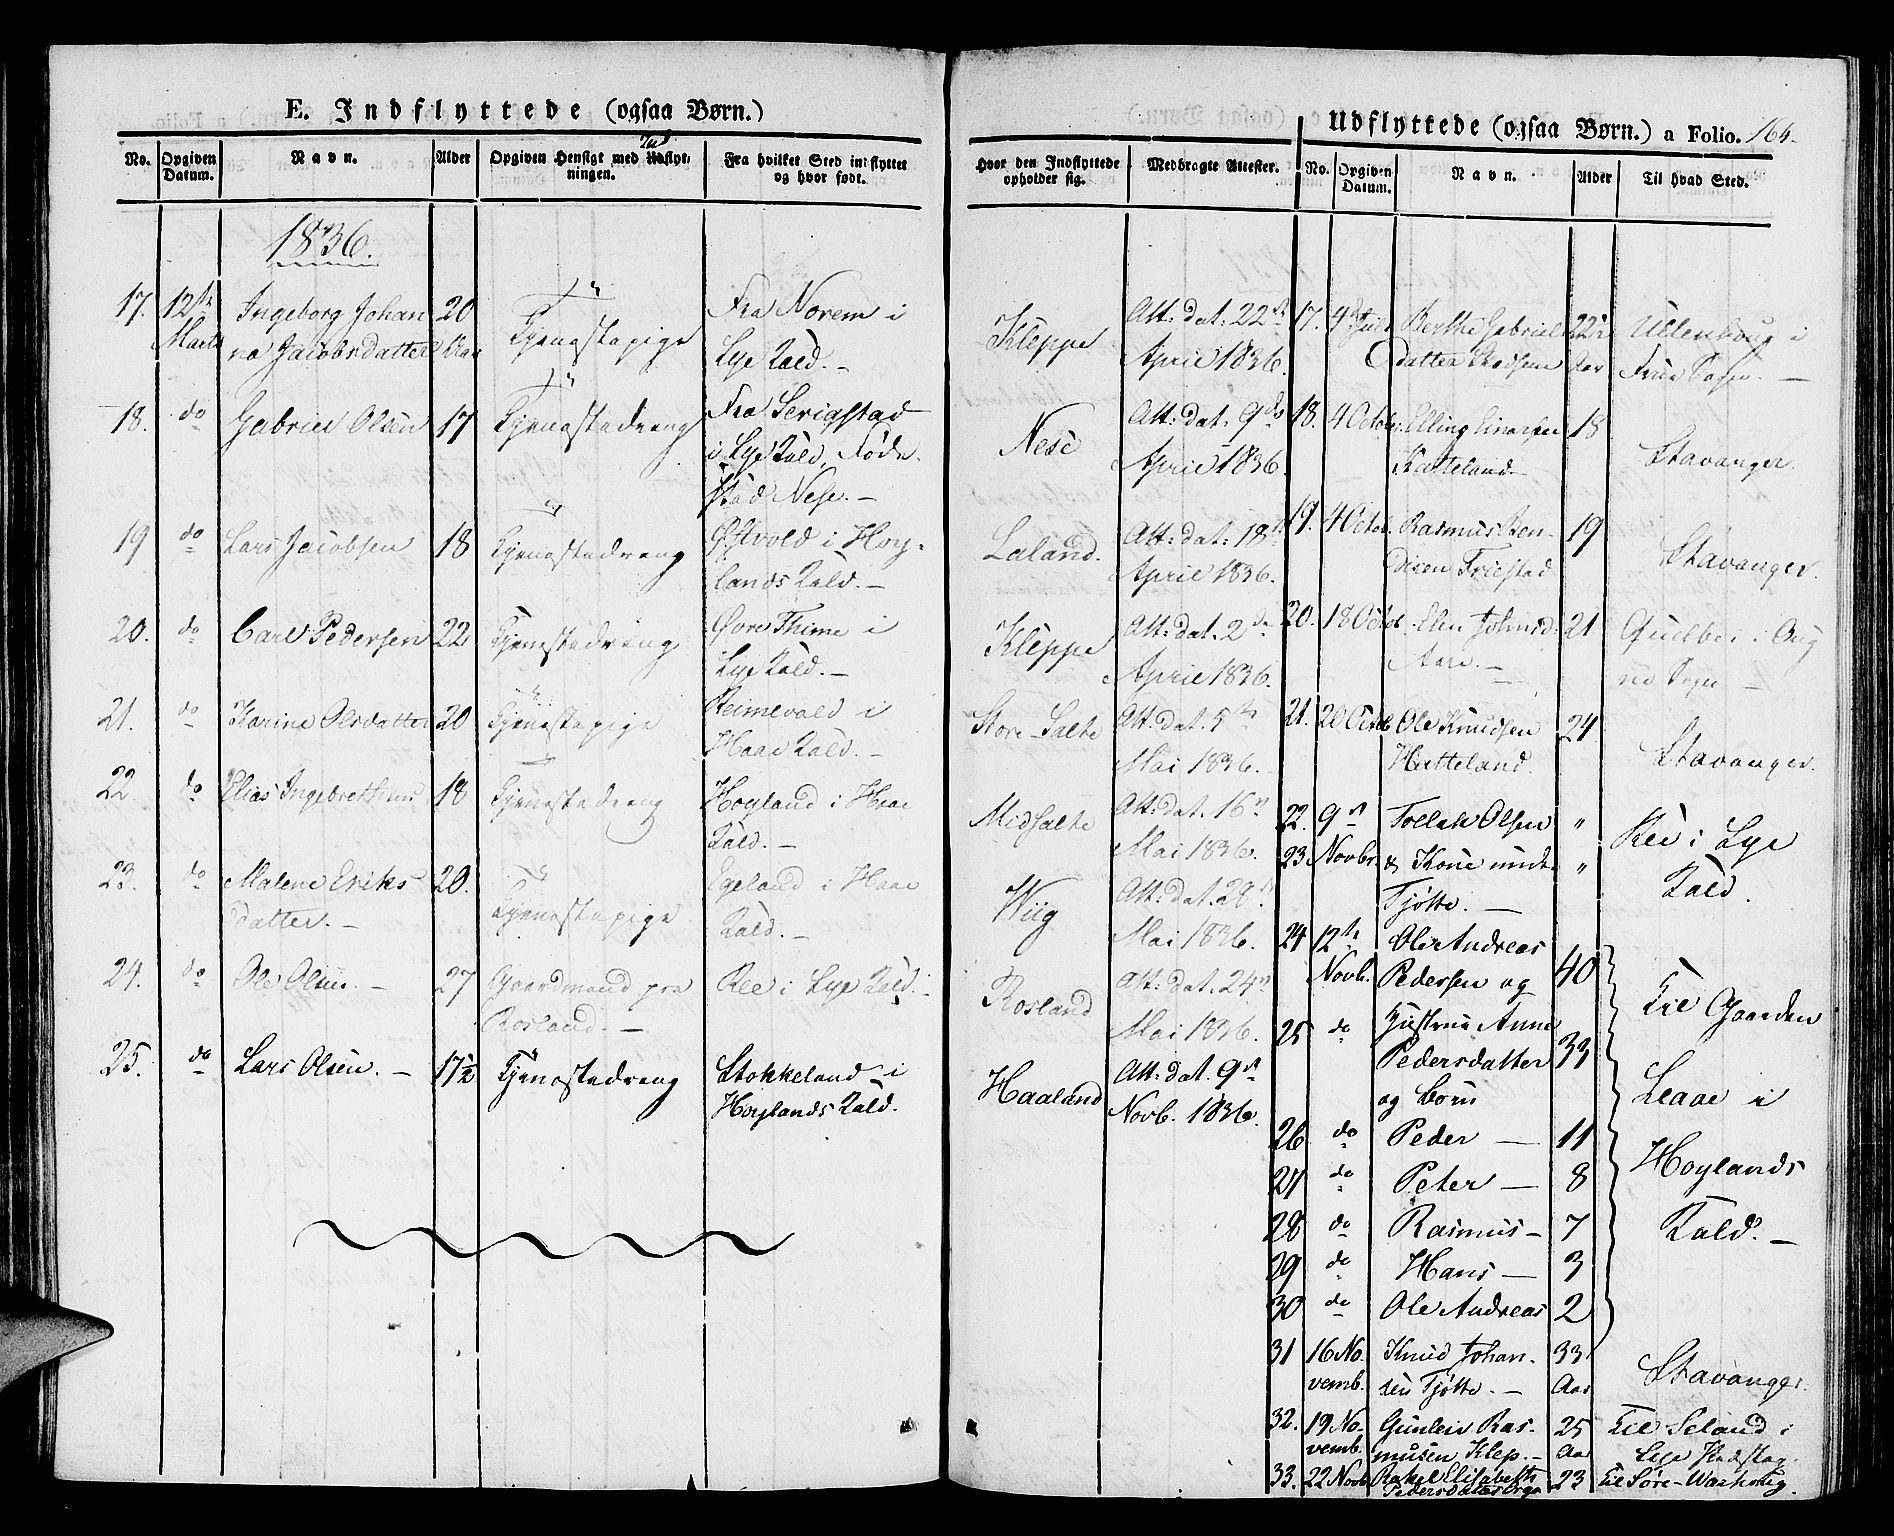 E. Indflyttede (ogsaa Børn.)
No. Opgiven Datum. Navn. Alder Opgiven Hensigt med Indflytningen. Fra hvilket Sted indflyttet og hvor født.
1836.
17. 12te Ingeborg Johan 20 Til Fra Norem i
Marts ne Jacobsdatter Aar Tjenestepige Lye Kald. –
18. do Gabriel Olsen 17 Tjenestedreng Fra Serigstad
i Lye Kald, Føde
stad Nese. –
19 do Lars Jacobsen 18 Tjenestedreng Østvold i Høy-
lands Kald. –
20. do Carl Pedersen 22 Tjenestedreng Øvre Thime i
Lye Kald. –
21. do Karine Olsdatter 20 Tjenestepige Reimevold i
Haae Kald. –
22. do Elias Ingebrethsen 18 Tjenestedreng Høyland i Haae
Kald. –
23. do Malene Eriks 20. Tjenestepige Egeland i Haae
datter. – Kald. –
24. do Ole Olsen. – 27 Gaardmand paa Ree i Lye Kald. –
Rosland. –
25. do Lars Olsen. – 17½ Tjenestedreng Stokkeland i
Hoylands Kald.
Hvor den Indflyttede opholder sig. Medbragte Attester.
Kleppe Att: dat: 22de
April 1836.
Nese Att: dat: 9de
April 1836.
Laland. Att: dat: 18de
April 1836.
Kleppe Att: dat. 2de
April 1836.
Store-Salte Att: dat. 5te
Mai 1836.
Midsalte Att: dat. 16de
Mai 1836.
Wiig Att: dat. 28de
Mai 1836.
Rosland Att: dat. 24de
Mai 1836.
Haaland Att: dat. 9de
Novb. 1836.
Udflyttede (ogsaa Børn.) a Folio. 164.
No. Opgiven Datum. Navn. Alder Til hvad Sted.
17. 4de Juli Berthe Gabriels 22
datter Aar
18. 4 Octob. Elling Einarsen 18
Stavanger.
19. 4 Octob. Rasmus 19
Friestad Stavanger.
20. 18 Octob. 21
21. 20 Octob Ole Knudsen 24
Hatteland. Stavanger.
22. 9de Tollak Olsen " Ree i Lye
23 Novbr. & Kone " Kald.
Tjøtte. –
24 12te Ole Andreas
Novb. Pedersen og 40 Til Gaarden
25 do Hustrue Anne
Pedersdatter 33 Leaae i
og Børn
26 do Peder – 11 Hoylands
27 do Peter – 8
28 do Rasmus – 7 Kald. –
29 do Hans – 3
30 do Ole Andreas 2
31 16 No- Knud Johan- 33
vemb. sen Tjøtte. – Aar Stavanger.
32. 19 No- Gunlein Ras- 25 Til Seland i
vemb. musen Klep. – Aar Lye
33. 22 Novb Rakel Elisabeth 23 til Søre-Warhoug.
Pedersdatter